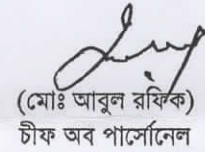 (মোঃ আবুল রফিক)
চীফ অব পার্সোনেল